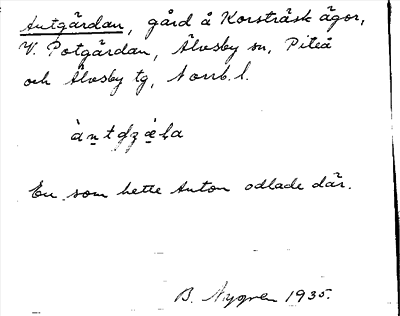 Antgårdan, gård å Korsträsk ägor,
V. Potgårdan, Älvsby sn, Piteå
och Älvsby tg, Norrb. l.
En som hette Anton odlade där.
B. Nygren 1935.